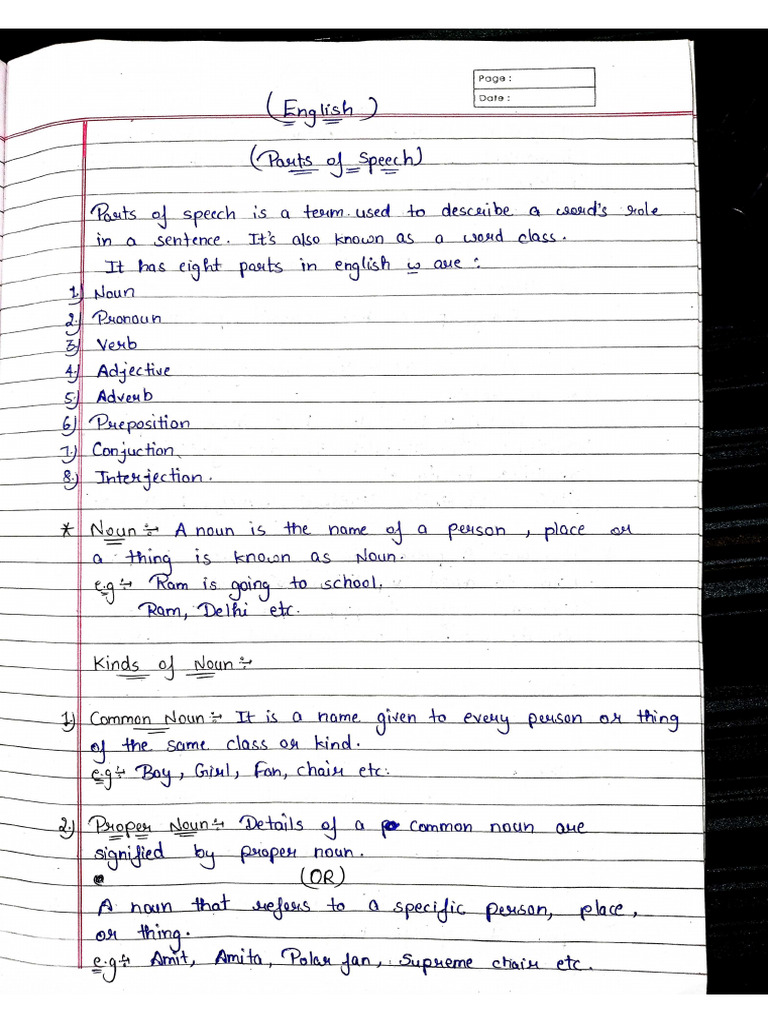 Page :
Date :
(English)
(Parts of Speech)
Parts of speech is a term used to describe a word's role
in a sentence. It's also known as a word class.
It has eight parts in english are :
1.) Noun
2.) Pronoun
3.) Verb
4.) Adjective
5.) Adverb
6.) Preposition
7.) Conjuction
8.) Interjection.
* Noun :- A noun is the name of a person, place or
a thing is known as Noun.
e.g :- Ram is going to school.
Ram, Delhi etc.
Kinds of Noun :-
1.) Common Noun :- It is a name given to every person or thing
of the same class or kind.
e.g :- Boy, Girl, Fan, chair etc.
2.) Proper Noun :- Details of a common noun are
signified by proper noun.
(OR)
A noun that refers to a specific person, place,
or thing.
e.g :- Amit, Amita, Polar fan, Supreme chair etc.